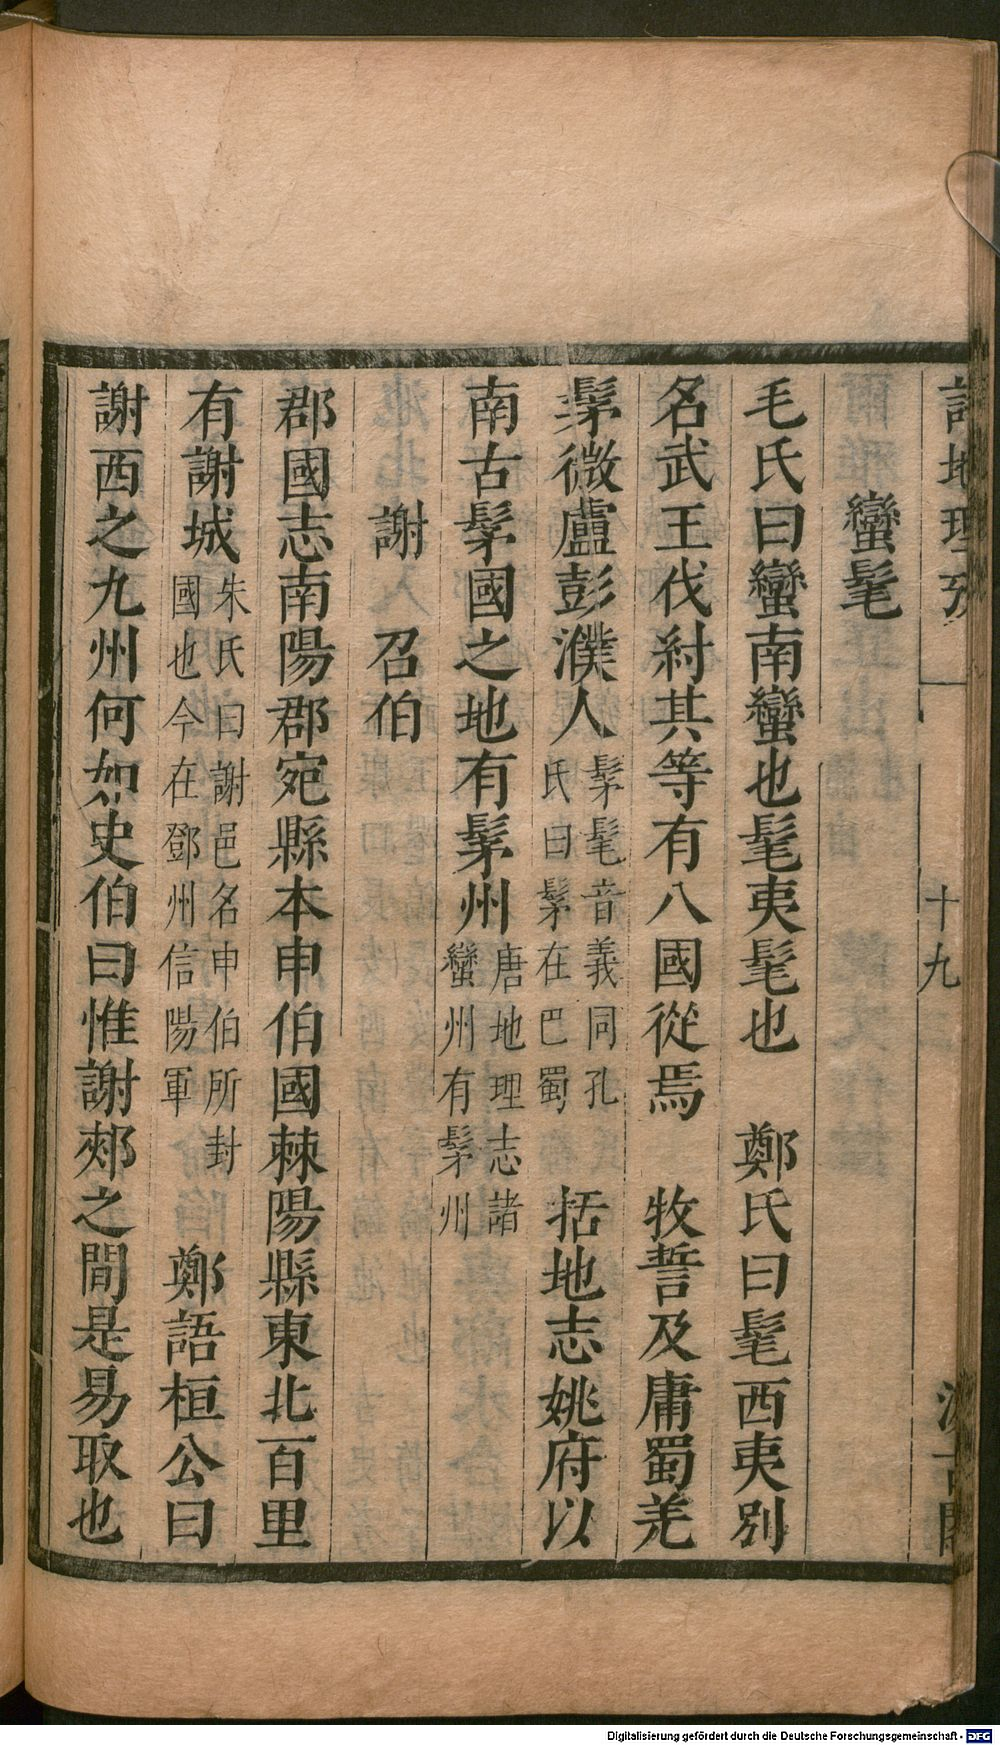 蠻髦
毛氏曰蠻南蠻也髦夷髦也 鄭氏曰髦西夷别
名武王伐紂其等有八國從焉 牧誓及庸蜀羌
髳微盧彭濮人髳髦音義同孔氏曰髳在巴蜀 括地志姚府以
南古髳國之地有髳州唐地理志諸蠻州有髳州
謝 召伯
郡國志南陽郡宛縣本申伯國棘陽縣東北百里
有謝城朱氏曰謝邑名申伯所封國也今在鄧州信陽軍 鄭語桓公曰
謝西之九州何如史伯曰惟謝郟之間是易取也
地理
十九
Digitalisierung gefördert durch die Deutsche Forschungsgemeinschaft - DFG